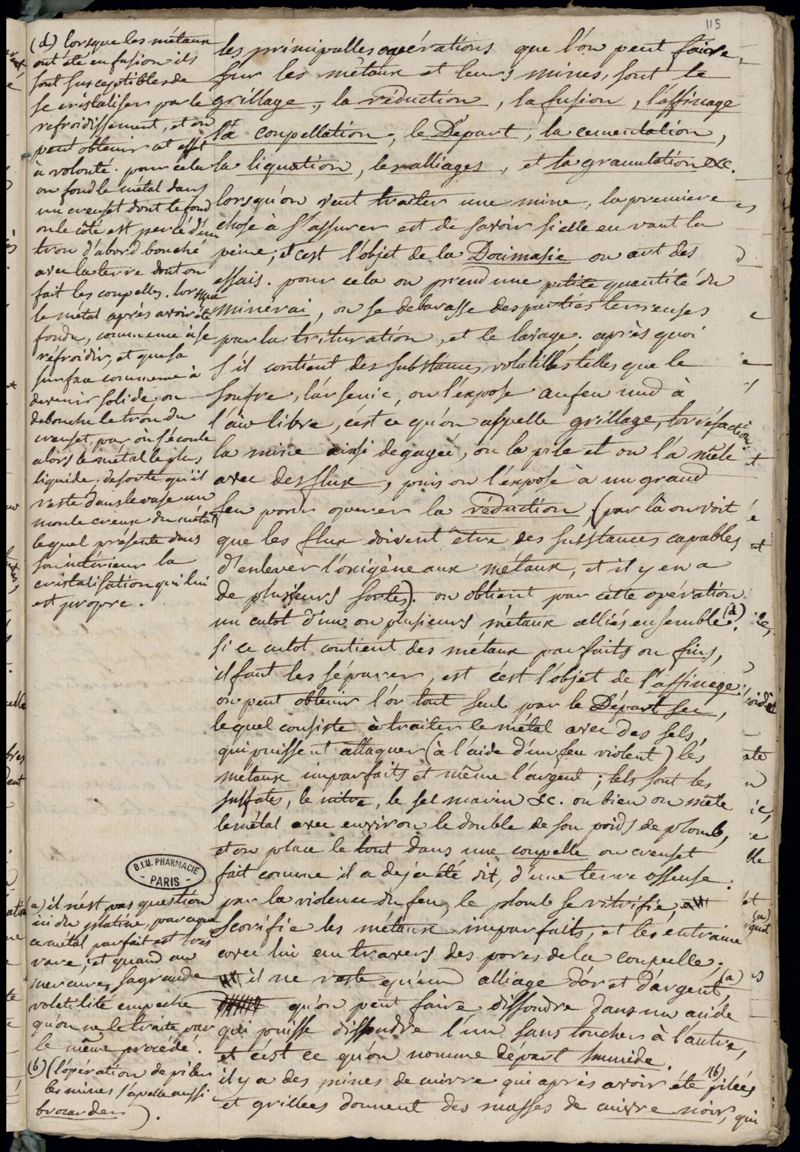 115
les principalles opérations que l'on peut faire
sur les métaux et leurs mines, sont le
grillage, la réduction, la fusion, l'affinage
la coupellation, le Départ, la cementation,
la liquation, les alliages, et la granulation &c.
lorsqu'on veut traiter une mine, la premiere
chose à s'assurer est de savoir si elle en vaut la
peine; et c'est l'objet de la Docimasie ou art des
essais. pour céla on prend une petite quantité du
minérai, on se débarasse des parties terreuses
par la trituration, et le lavage. après quoi
s'il contient des substances volatilles telles que le
soufre, l'arsenic, on l'expose au feu nud à
l'air libre, c'est ce qu'on appelle grillage, torréfaction.
la mine ainsi degagée, on la pile et on l'a mêle
avec des flux, puis on l'expose à un grand
feu pour opérer la réduction, (par là on voit
que les flux doivent être des substances capables
d'enlever l'oxigène aux métaux, et il y en a
de plusieurs sortes). on obtient par cette opération
un culot d'un ou plusieurs métaux alliés ensemble (d).
si ce culot contient des métaux parfaits ou fins,
il faut les séparer, est c'est l'objet de l'affinage;
on peut obtenir l'or tout seul par le Départ sec,
lequel consiste à traiter le métal avec des sels,
qui puissent attaquer (à l'aide d'un feu violent) les
métaux imparfaits et même l'argent; tels sont les
sulfates, le nitre, le sel marin &c. ou bien on mêle
le métal avec environ le double de son poids de plomb,
et on place le tout dans une coupelle ou creuset
fait comme il a déja été dit, d'une terre osseuse.
par la violence du feu, le plomb se vitrifie,
scorifie les métaux imparfaits, et les entraine
avec lui en travers des pores de la coupelle;
il ne reste qu'un alliage d'or et d'argent, (a)
qu'on peut faire dissoudre dans un acide
qui puisse dissoudre l'un sans toucher à l'autre,
et c'est ce qu'on nomme départ humide.
il y a des mines de cuivre qui après avoir été (b) pilées
et grillées donnent des masses de cuivre noir, qui
(d) lorsque les métaux
ont été en fusion ils
sont susceptibles de
se cristaliser par le
refroidissement, et on
peut obtenir cet effet
à volonté. pour cela
on fond le métal dans
un creuset dont le fond
ou le côté est percé d'un
trou d'abord bouché
avec la terre dont on
fait les coupelles. lorsque
le métal après avoir été
fondu, commence à se
réfroidir, et que sa
surface commence à
devenir solide. on
debouche le trou du
creuset, par où s'écoule
alors le métal le plus
liquide. desorte qu'il
reste dans le vase un
moule creux du métal
lequel présente dans
son intérieur la
cristalisation qui lui
est propre.
B.I.U. PHARMACIE
PARIS
(a) il n'est pas question
ici du platine, parceque
ce métal parfait est très
rare; et quand au
mercure, sa grande
volatilité empeche
qu'on ne le traite par
le même procédé.
(b) (l'opération de piler
les mines s'apelle aussi
brocarder).